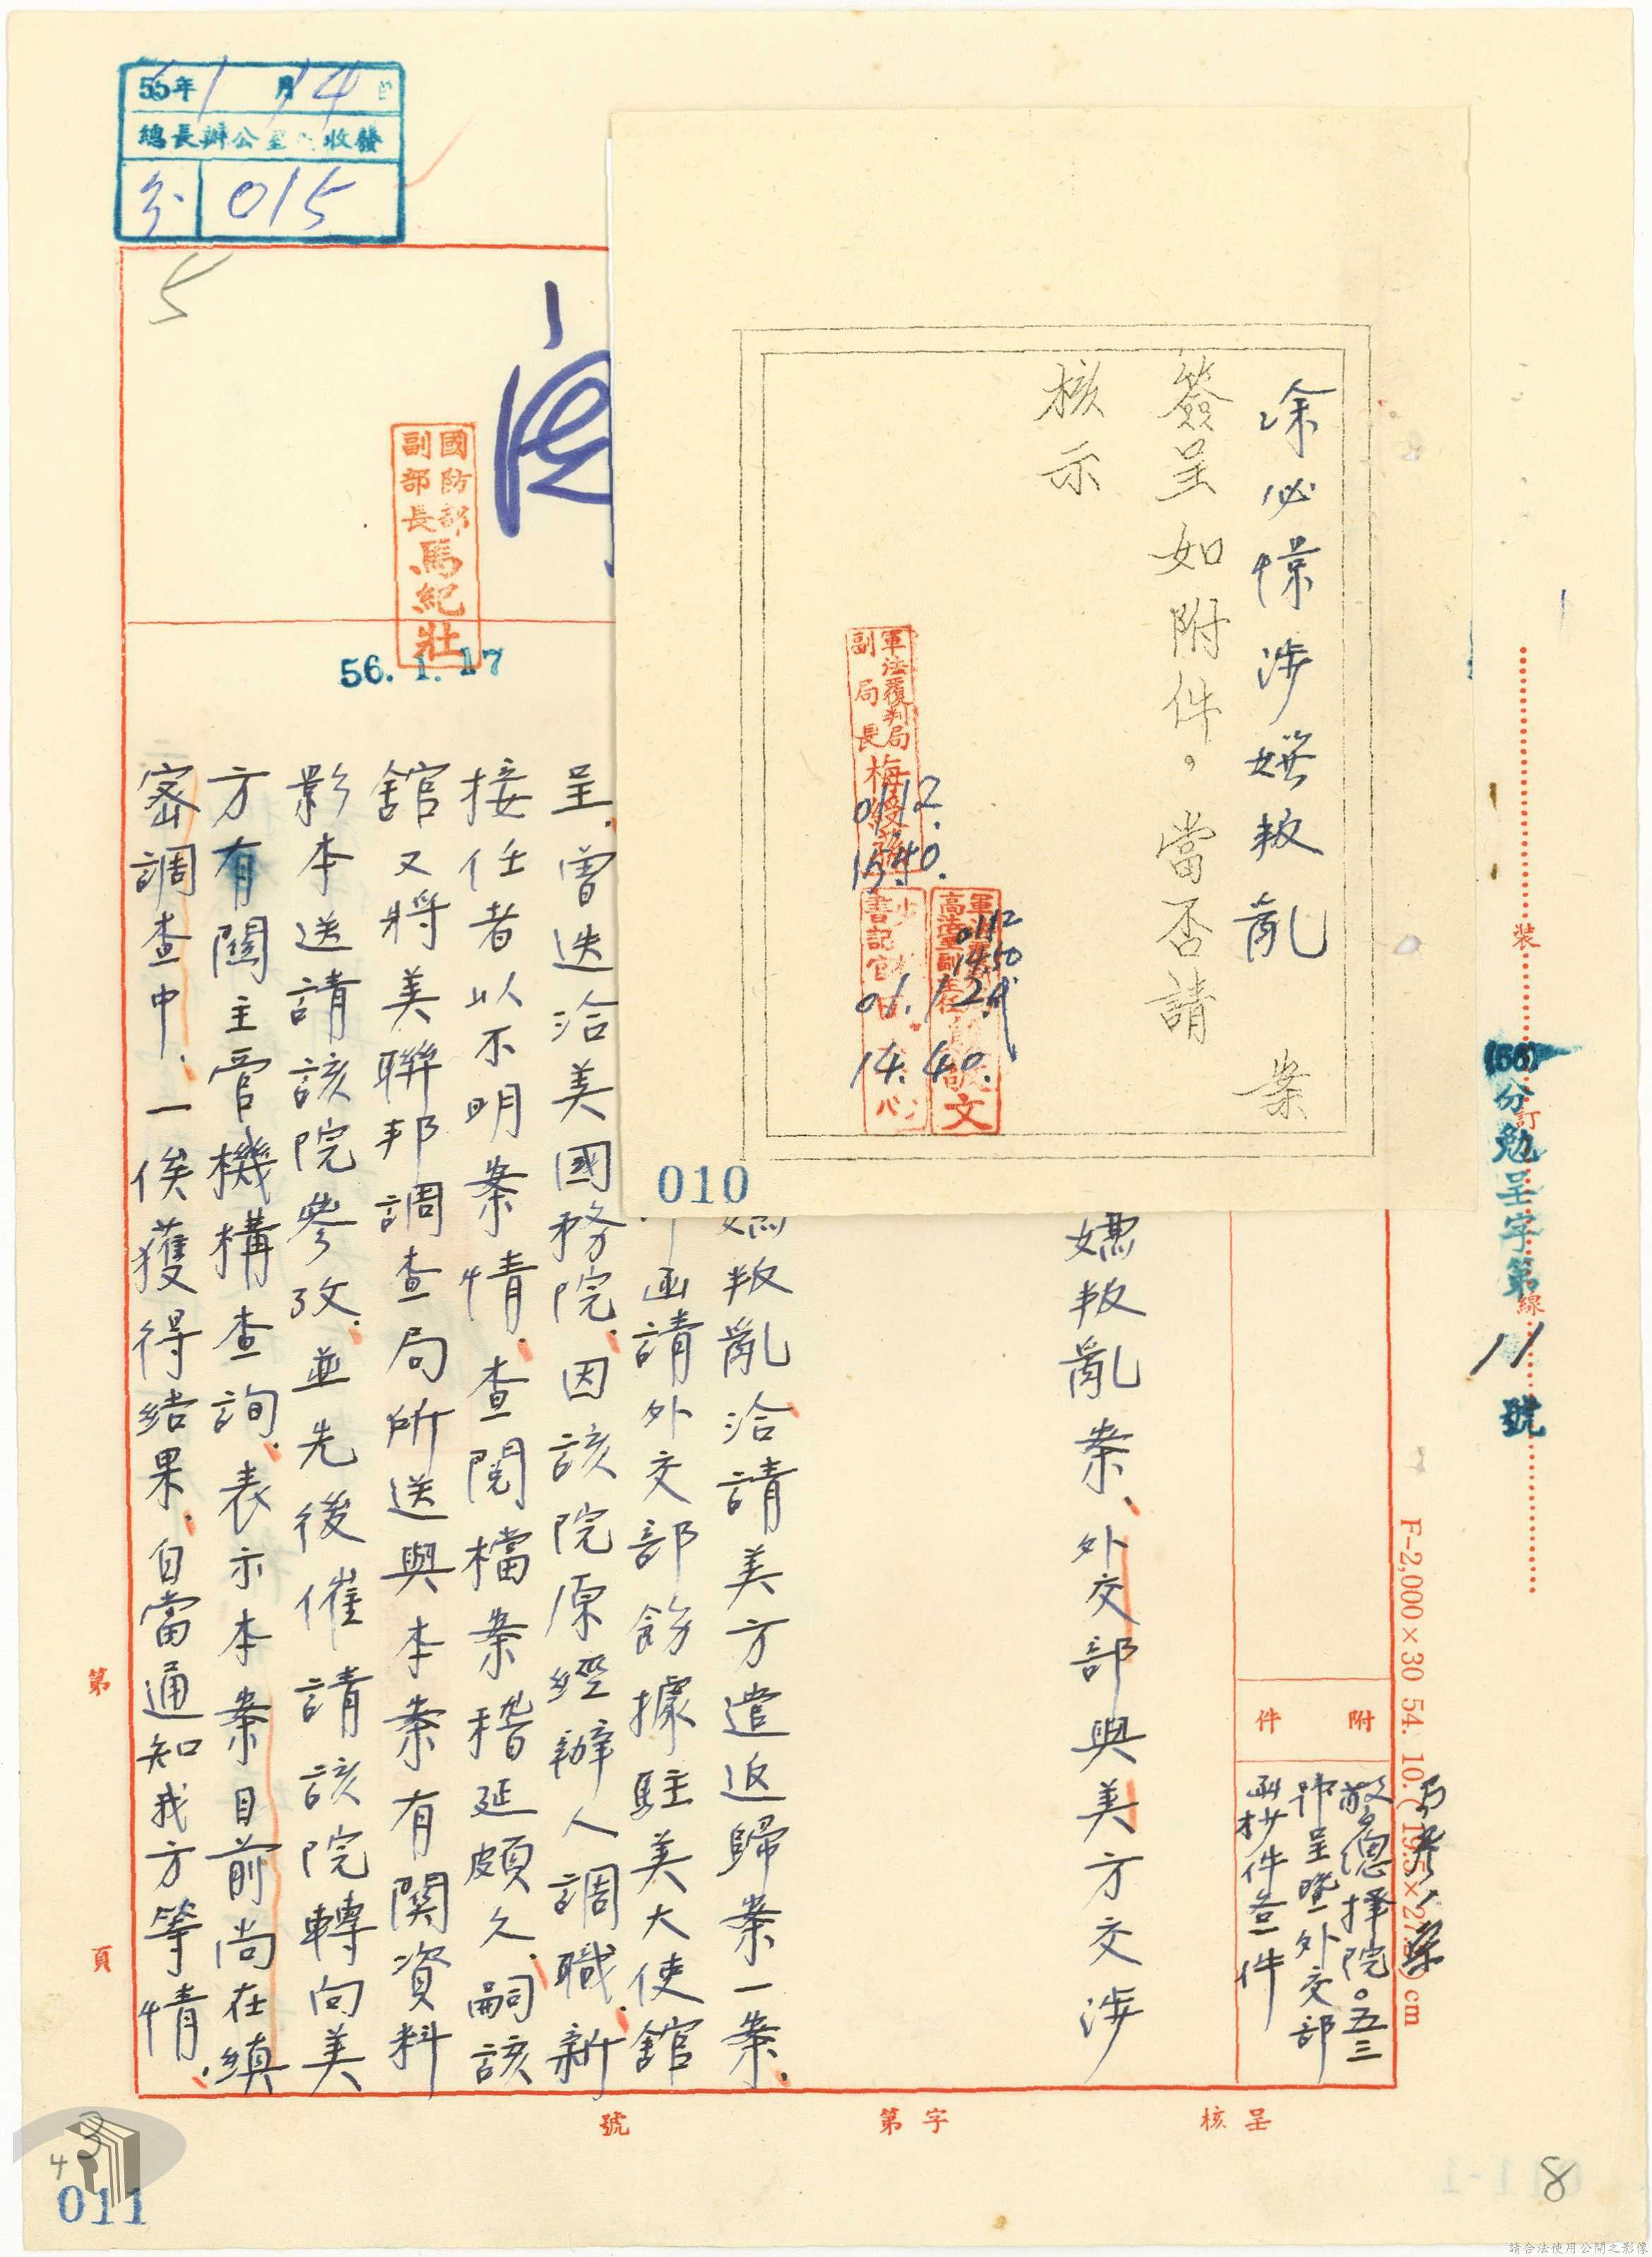 (56)分勉呈字第11號
裝
訂
線
F-2,000×30 54. 10. (19.5×27.5) cm
附件
敬總擇院。五三
號呈暨外交部
函抄件各一件
涂必 涉嫌叛亂 案
簽呈如附件。當否請
核示
軍法覆判局
副局長 梅綬蓀
0112.
1540.
軍法
高
副主任
文
0112
1450
書記官
01.12
14.40.
010
嫌叛亂案、外交部與美方交涉
嫌叛亂洽請美方遣返歸案一案、
函請外交部飭據駐美大使舘
呈、曾迭洽美國務院、因該院原經辦人調職、新
接任者以不明案情、查閱檔案稽延頗久、嗣該
舘又將美聯邦調查局所送與本案有関資料
影本送請該院參攷、並先後催請該院轉向美
方有關主管機構查詢、表示本案目前尚在縝
密調查中、一俟獲得結果、自當通知我方等情、
國防部
副部長 馬紀壯
56. 1. 17
55年1月14日
總長辦公室收發
分 015
5
第
頁
呈核
字第
號
3
4
011
8
請合法使用公開之影像